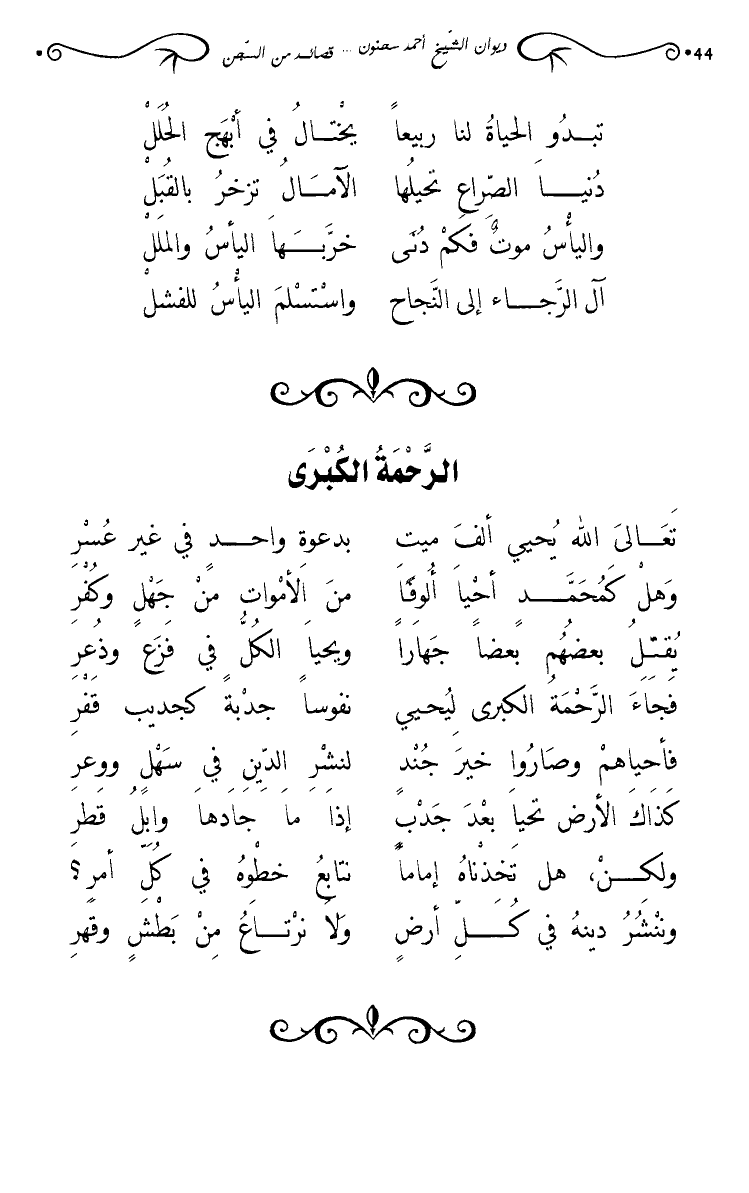 44 ديوان الشّيخ أحمد سحنون ... قصائد من السّجن
تبـدُو الحياةُ لنا ربيعاً يخْتالُ في أبْهَج الحُلَلْ
دُنيـا الصِّراعِ تحيلُها الآمَالُ تزخرُ بالقُبَلْ
واليأْسُ موتٌ فكَمْ دُنًى خرَّبَـها اليأسُ والمللْ
آل الرَّجـاء إلى النَّجاح واسْتسْلمَ اليأْسُ للفشلْ
الرَّحْمَةُ الكُبْرَى
تَعَـالىَ الله يُحيي ألفَ ميتٍ بدعوةِ واحـدٍ في غير عُسْرِ
وَهلْ كَمُحَمَّـدٍ أحْيا أُلوفًا منَ الأمْواتِ مِنْ جَهْلٍ وكُفْرِ
يُقتّـلُ بعضُهُم بعضاً جهاراً ويحيا الكلُّ في فزَعٍ وذُعرِ
فجاءَ الرَّحْمَةُ الكبرى ليُحـيي نفوساً جدْبةً كجديبِ قَفْرِ
فأحياهمْ وصَارُوا خيرَ جُنْدٍ لنشْرِ الدِّينِ في سَهْلٍ ووعرِ
كَذاكَ الأرض تحيا بعْدَ جَدْبٍ إذا ما جادها وابلُ قطرِ
ولكـنْ، هل تخذْناهُ إماماً نتابعُ خطْوهُ في كلِّ أمرٍ؟
وننْشُرُ دينهُ في كُـلِّ أرضٍ ولاَ نرْتـاعُ مِنْ بَطْشٍ وقهرِ